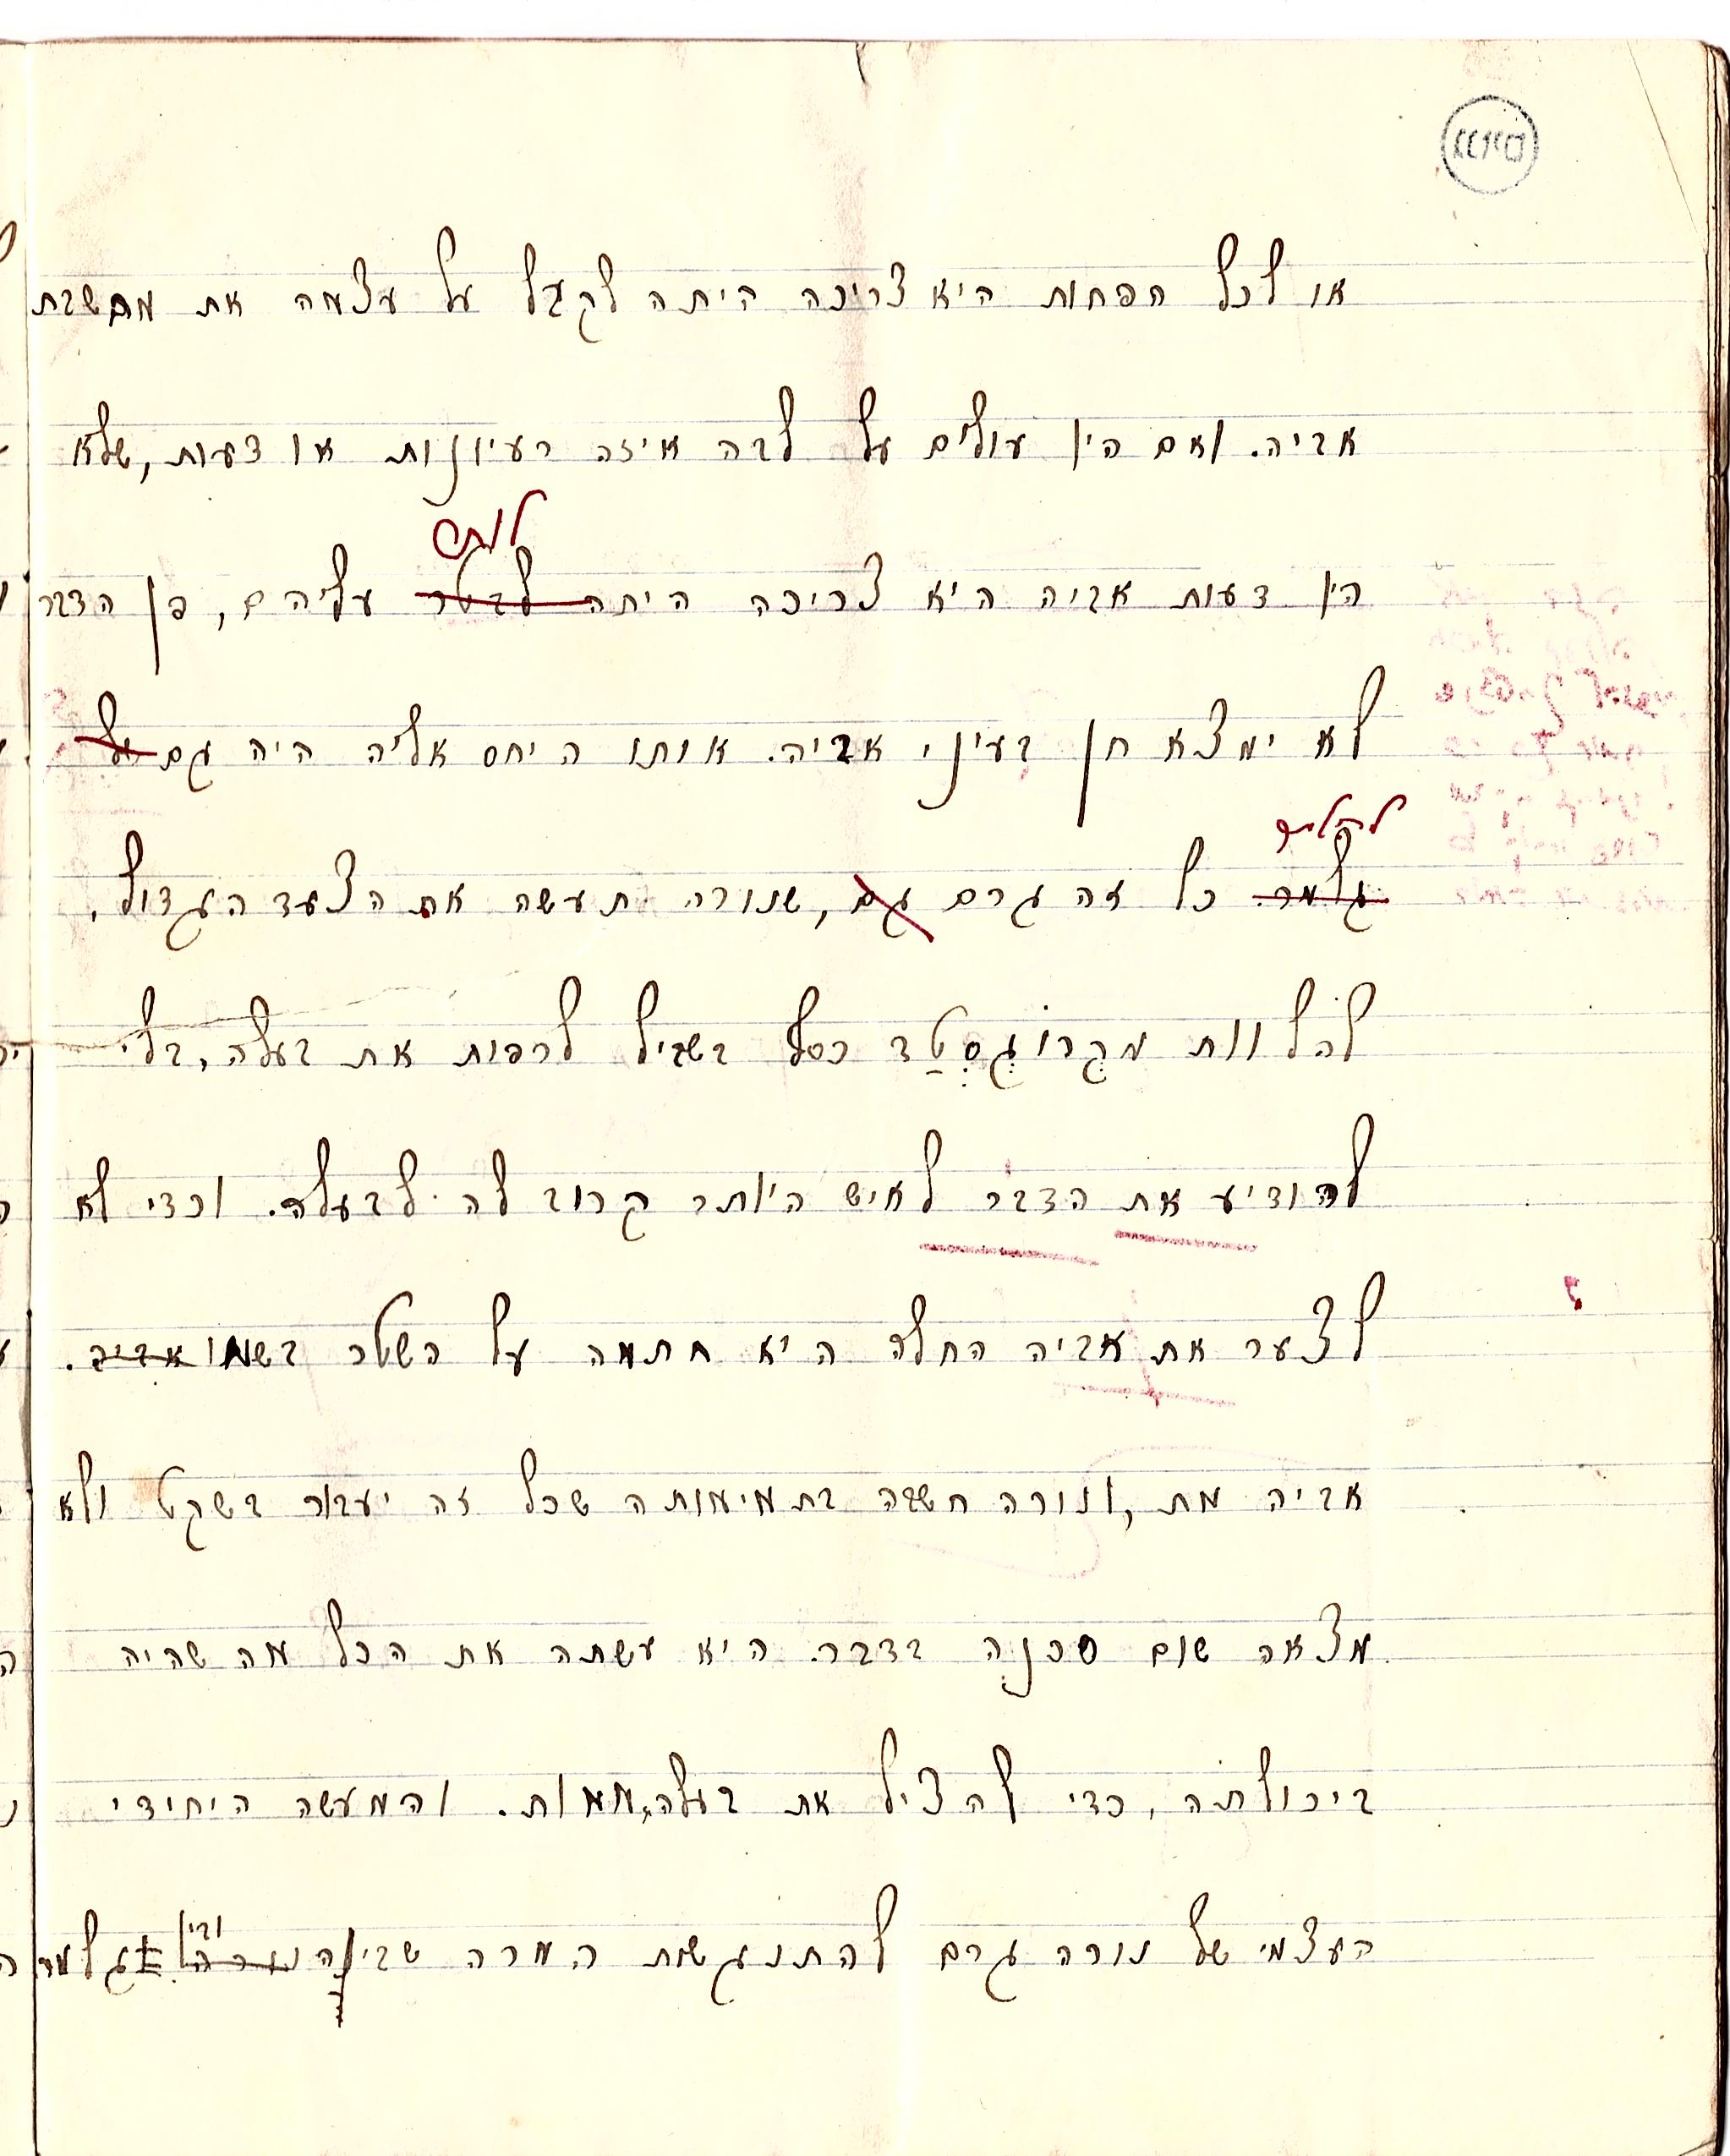 או לכל הפחות היא צריכה היתה לקבל על עצמה את מחשבת
אביה. ואם היו עולים על לבה איזה רעיונות או דעות, שלא
לותר
היו דעות אביה היא צריכה היתה לבטר עליהם, פן הדבר
לא ימצא חן בעיני אביה. אותו היחס אליה היה גם על
גלמר. כל זה גרם גם, שנורה תעשה את הצעד הגדול,
להלוות מקרוגסטד כסף בשביל לרפות את בעלה, בלי
להודיע את הדבר לאיש היותר קרוב לה לבעלה. וכדי לא
לצער את אביה החלה היא חתמה על השטר בשמו אביה.
אביה מת, ונורה חשבה בתמימותה שכל זה יעבור בשקט ולא
מצאה שום סכנה בדבר. היא עשתה את הכל מה שהיה
ביכולתה, כדי להציל את בעלה, ממות. והמעשה היחידי
ובין
העצמי של נורה גרם להתנגשות המרה שבין הנורה גלמר